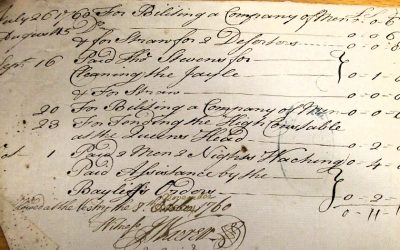 July 26 1760 For Billiting a Company of Men 0-0-6
August 15 & for Straw for 2 Desertors 0-0-8
Sept. 16 Paid Tho Stevens for
Cleaning the Jayle 0-1-0
& For Straw 0-0-
20 For Billiting a Company of Men 0-0-
23 For Tending the High Constable
at the Queens Head 0-0-
1 Paid 2 Men 2 Nights Waching 0-4-
Paid Assistance by the
Bayleffs Orders 0-2-
0-11-
at the Vestry the 3d November 1760
Witness